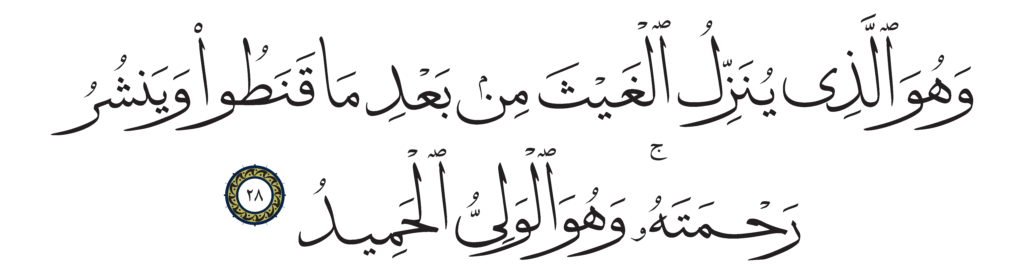 وَهُوَ ٱلَّذِى يُنَزِّلُ ٱلْغَيْثَ مِنۢ بَعْدِ مَا قَنَطُوا۟ وَيَنشُرُ
رَحْمَتَهُۥ ۚ وَهُوَ ٱلْوَلِىُّ ٱلْحَمِيدُ ٢٨